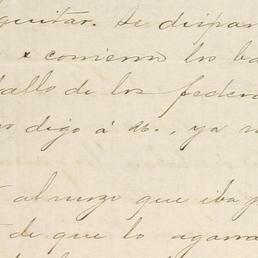 quitar. Se dispar
x comienza los ba
ballo de los federa
digo á Ud., ya n
almorzo que iba p
de que lo agarra